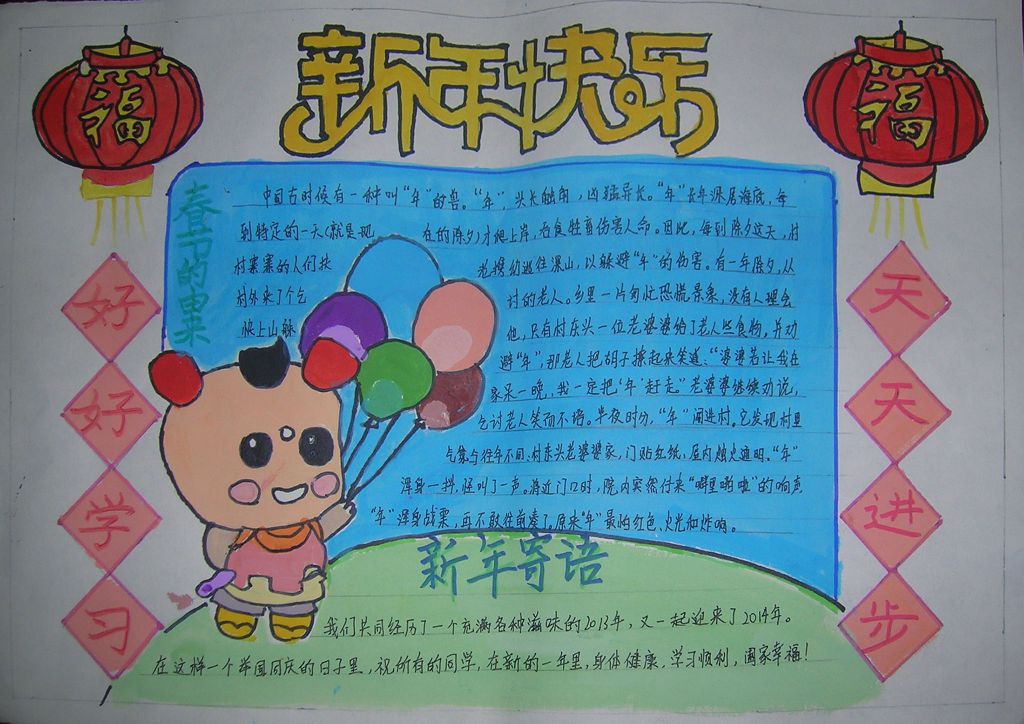 新年快乐
福
福
好
好
学
习
天
天
进
步
春节的由来
中国古时候有一种叫“年”的兽。“年”，头长触角，凶猛异长。“年”长年深居海底，每
到特定的一天(就是现在的除夕)才爬上岸，吞食牲畜伤害人命。因此，每到除夕这天，村
村寨寨的人们扶老携幼逃往深山，以躲避“年”的伤害。有一年除夕，从
村外来了个乞讨的老人。乡里一片匆忙恐慌景象，没有人理会
他，只有村东头一位老婆婆给了老人些食物，并劝
快上山躲避“年”，那老人把胡子撩起来笑道：“婆婆若让我在
家呆一晚，我一定把‘年’赶走。”老婆婆继续劝说，
乞讨老人笑而不语。半夜时分，“年”闯进村。它发现村里
气氛与往年不同：村东头老婆婆家，门贴红纸，屋内烛火通明。“年”
浑身一抖，怪叫了一声。将近门口时，院内突然传来“啪里啪啦”的响声，
“年”浑身战栗，再不敢往前凑了。原来“年”最怕红色、火光和炸响。
新年寄语
我们共同经历了一个充满各种滋味的2013年，又一起迎来了2014年。
在这样一个举国同庆的日子里，祝所有的同学，在新的一年里，身体健康，学习顺利，阖家幸福！